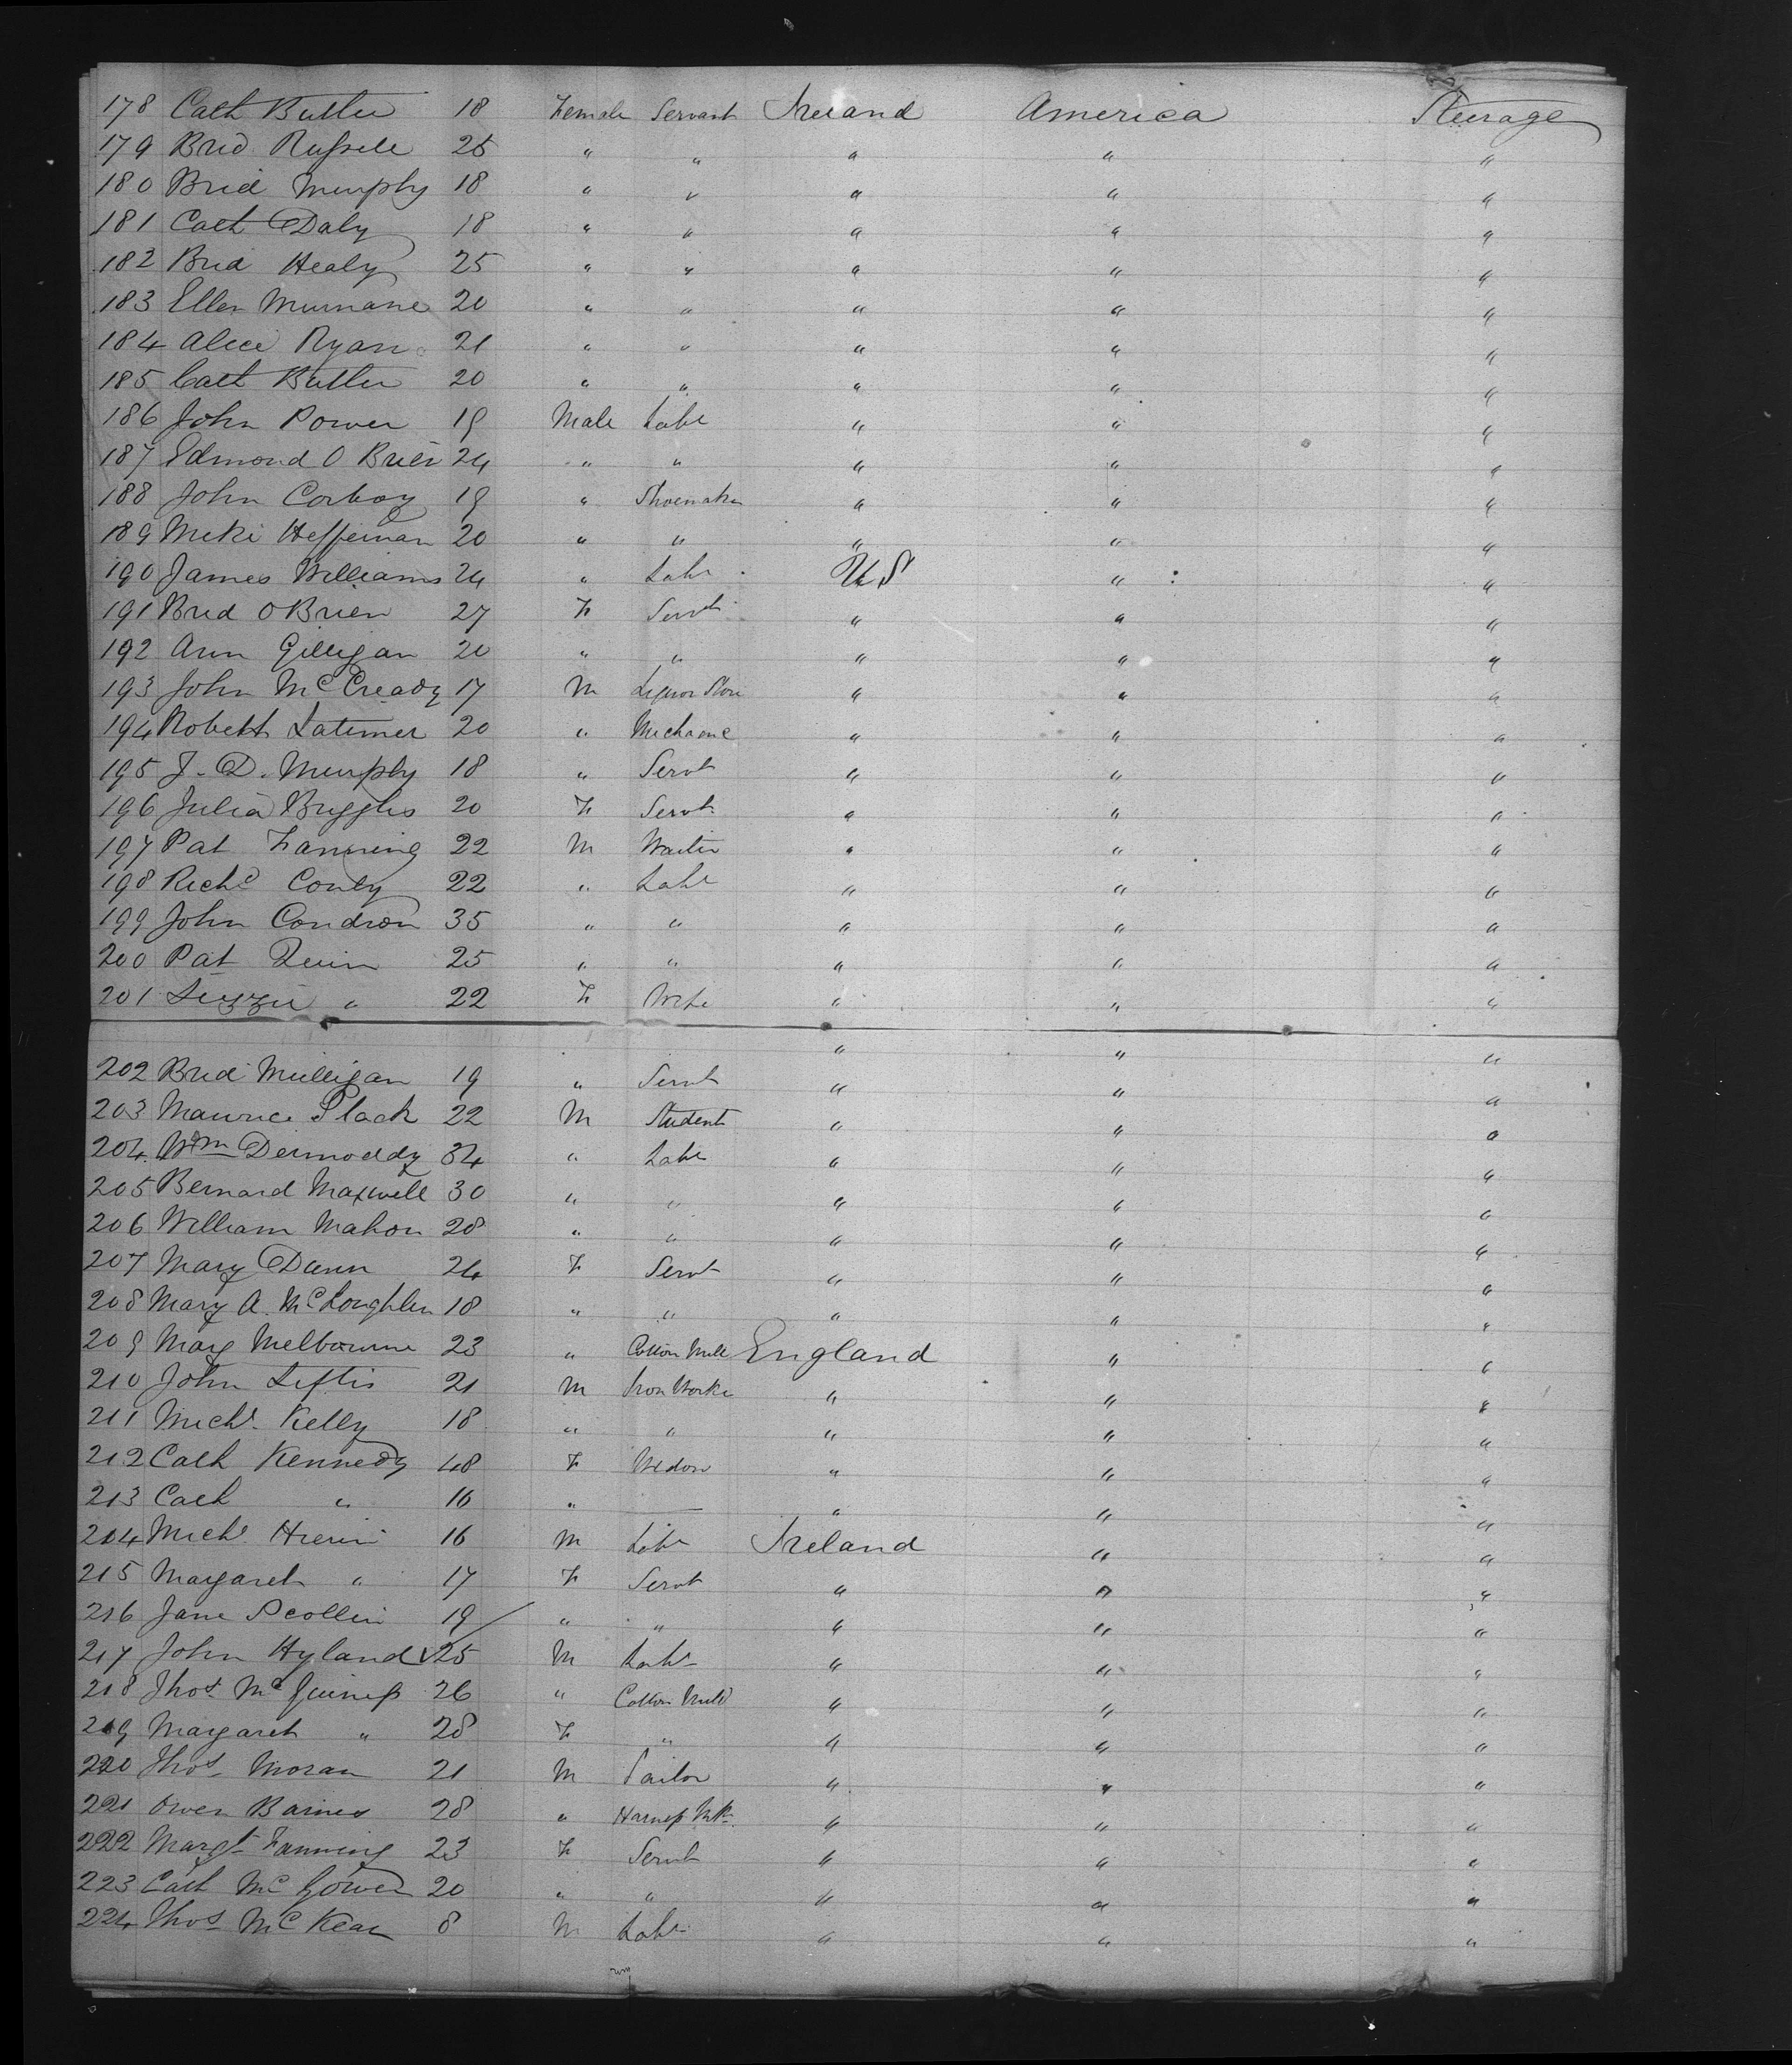 178 Cath Butler 18 Female Servant Ireland America Steerage
179 Brid Russell 25 " " " " "
180 Brid Murphy 18 " " " " "
181 Cath Daly 18 " " " " "
182 Brid Healy 25 " " " " "
183 Ellen Murnane 20 " " " " "
184 Alice Ryan 21 " " " " "
185 Cath Butler 20 " " " " "
186 John Power 19 Male Labr " " "
187 Edmond O Brien 24 " " " " "
188 John Corboy 19 " Shoemaker " " "
189 Mike Heffernan 20 " " " " "
190 James Williams 24 " Labr U S " "
191 Brid O Brien 27 F Servt " " "
192 Ann Gilligan 20 " " " " "
193 John McCready 17 M Liquor Store " " "
194 Robert Latimer 20 " Mechanic " " "
195 J. D. Murphy 18 " Servt " " "
196 Julia Buggles 20 F Servt " " "
197 Pat Fanning 22 M Waiter " " "
198 Richd Conly 22 " Labr " " "
199 John Condron 35 " " " " "
200 Pat Quin 25 " " " " "
201 Lizzie " 22 F Wife " " "
" " "
202 Brid Milligan 19 " Servt " " "
203 Maurice Slack 22 M Student " " "
204 Wm Dermoddy 34 " Labr " " "
205 Bernard Maxwell 30 " " " " "
206 William Mahon 28 " " " " "
207 Mary Dunn 24 F Servt " " "
208 Mary A. McLoughlin 18 " " " " "
209 Mary Melbourne 23 " Cotton Mill England " "
210 John Liftis 21 M Iron Worke " " "
211 Michl Kelly 18 " " " " "
212 Cath Kennedy 48 F Widow " " "
213 Cath " 16 " — " " "
214 Michl 16 M Labr Ireland " "
215 Margaret " 17 F Servt " " "
216 Jane Scollin 19 " " " " "
217 John Hyland 25 M Labr " " "
218 Thos McGuiness 26 " Cotton Mill " " "
219 Margaret " 28 F " " " "
220 Thos Moran 21 M Tailor " " "
221 Owen Barnes 28 " Harness Mkr " " "
222 Margt Fanning 23 F Servt " " "
223 Cath McGowen 20 " " " " "
224 Thos McKean 8 M Labr " " "